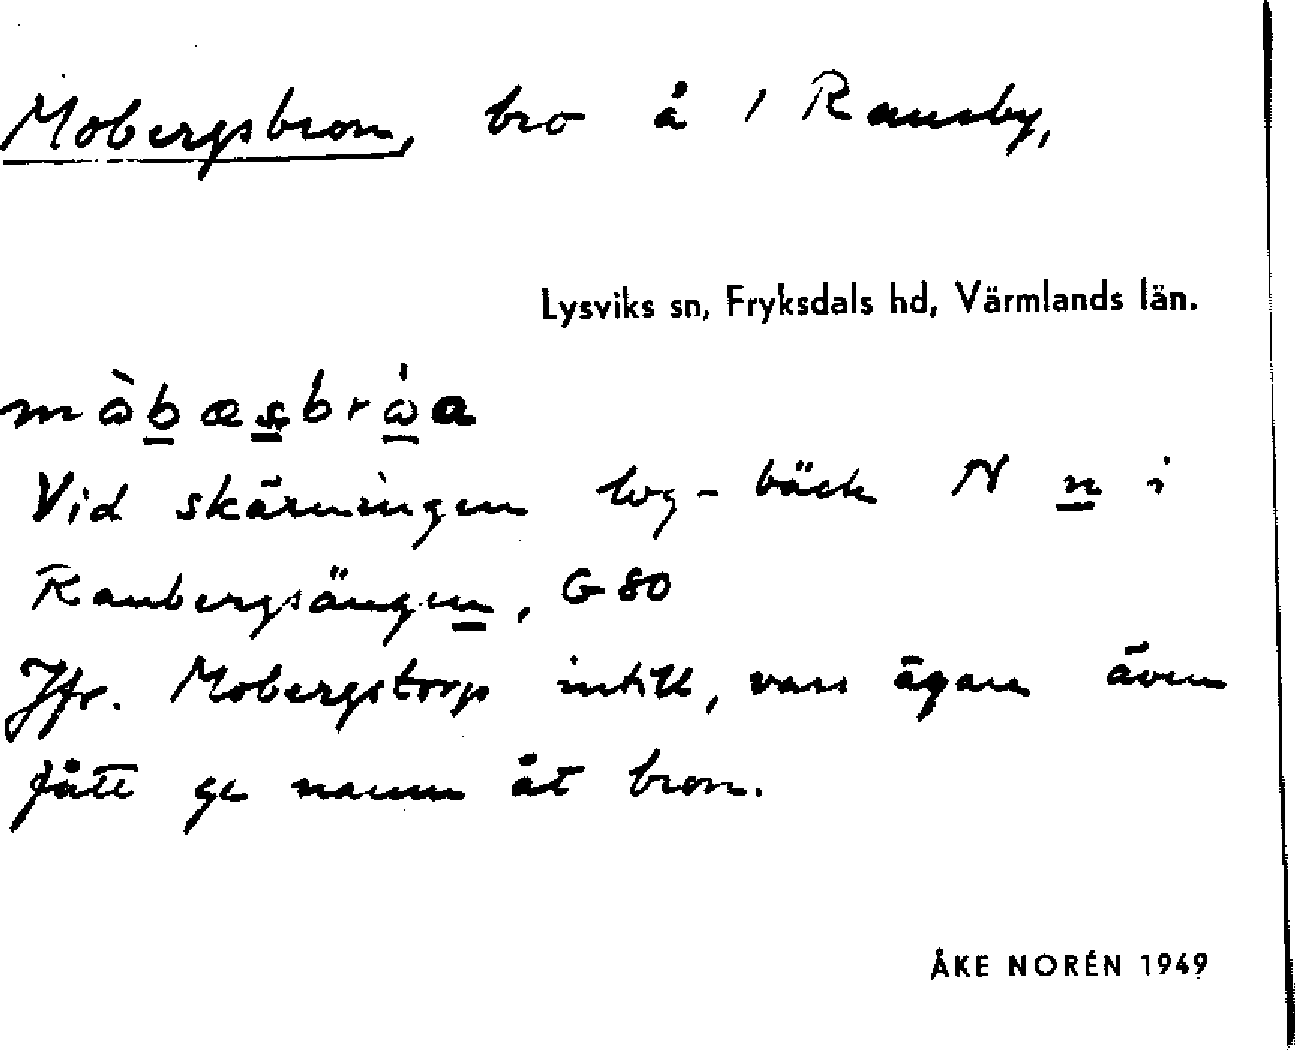 Mobergsbron, bro å 1 Ransby,
Lysviks sn, Fryksdals hd, Värmlands län.
Vid skärningen lvg - bäck N n i
Ranbergsängen, G 80
Jfr. Mobergstorp intill, vars ägare även
fått ge namn åt bron.
ÅKE NORÉN 1949